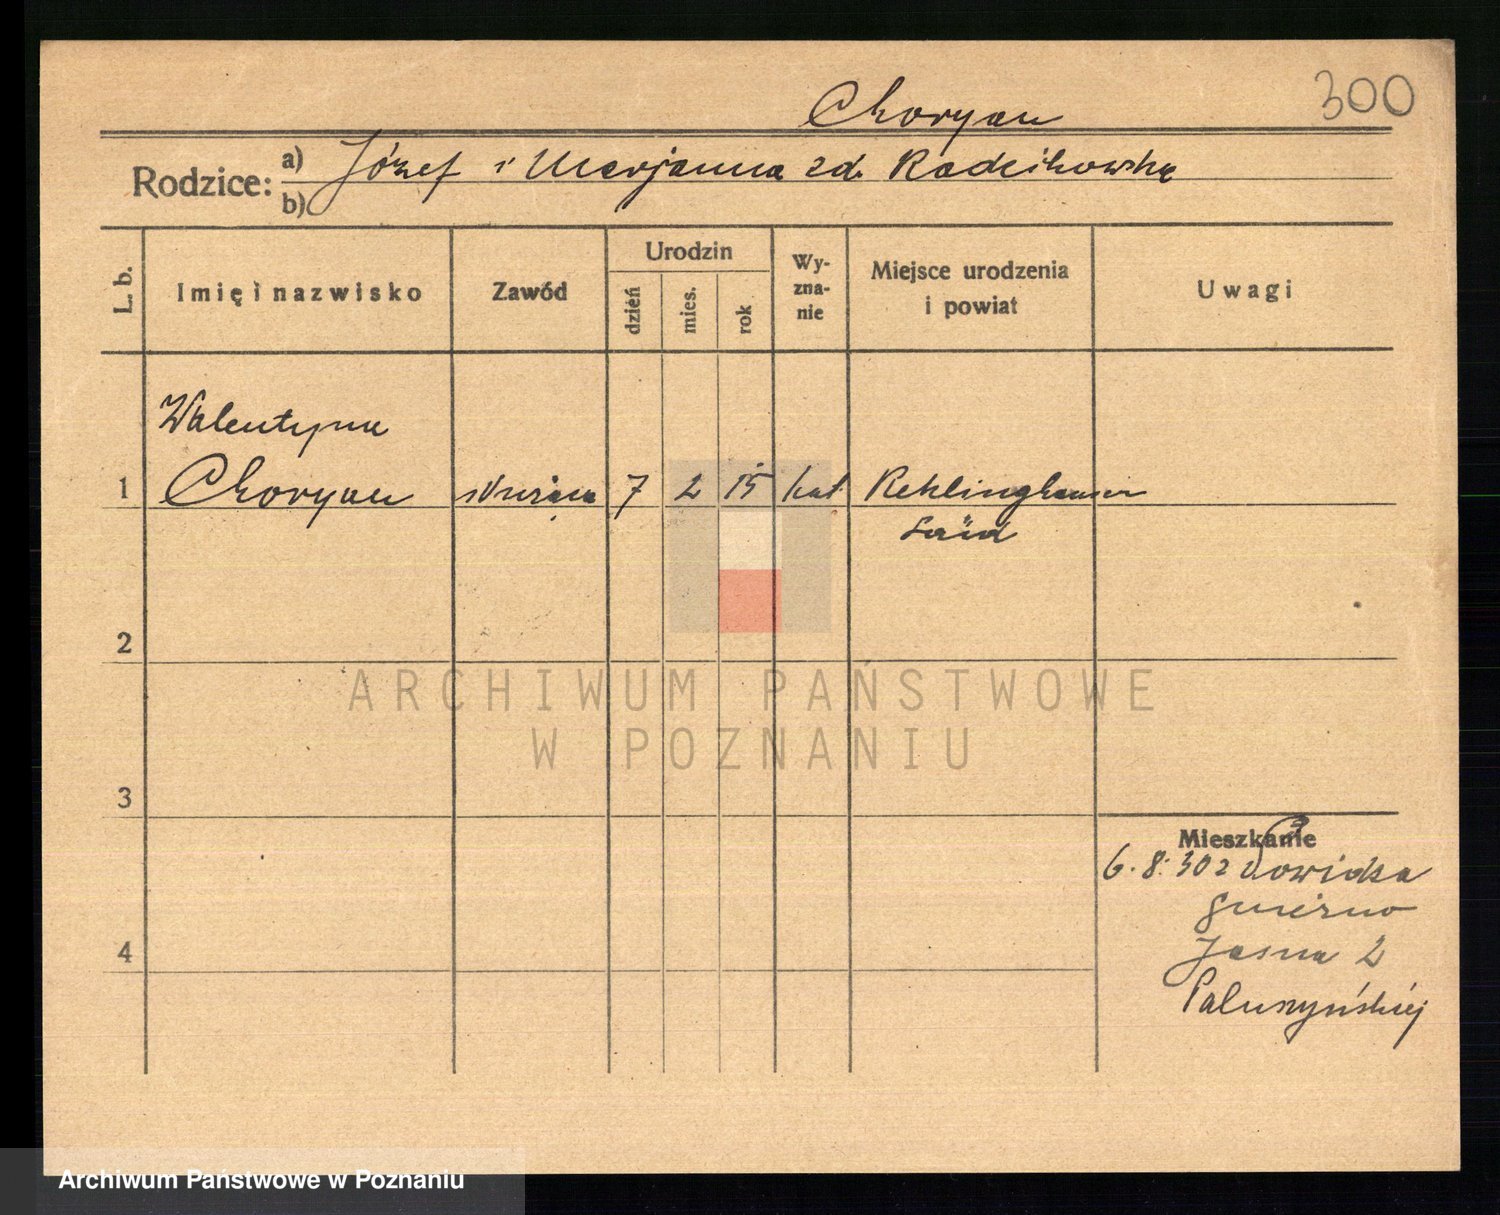 300
Choryan
Rodzice: a) Józef i Marjanna zd. Radcikowska
b)
L. b.
Imię i nazwisko
Zawód
Urodzin
dzień
mies.
rok
Wy-
zna-
nie
Miejsce urodzenia
i powiat
Uwagi
Walentyna
1 Choryan służąca 7 2 15 kat. Reklinghausen
Süd
2
3
4
Mieszkanie
6. 8. 30 z
Jasna 2
ARCHIWUM PAŃSTWOWE
W POZNANIU
Archiwum Państwowe w Poznaniu